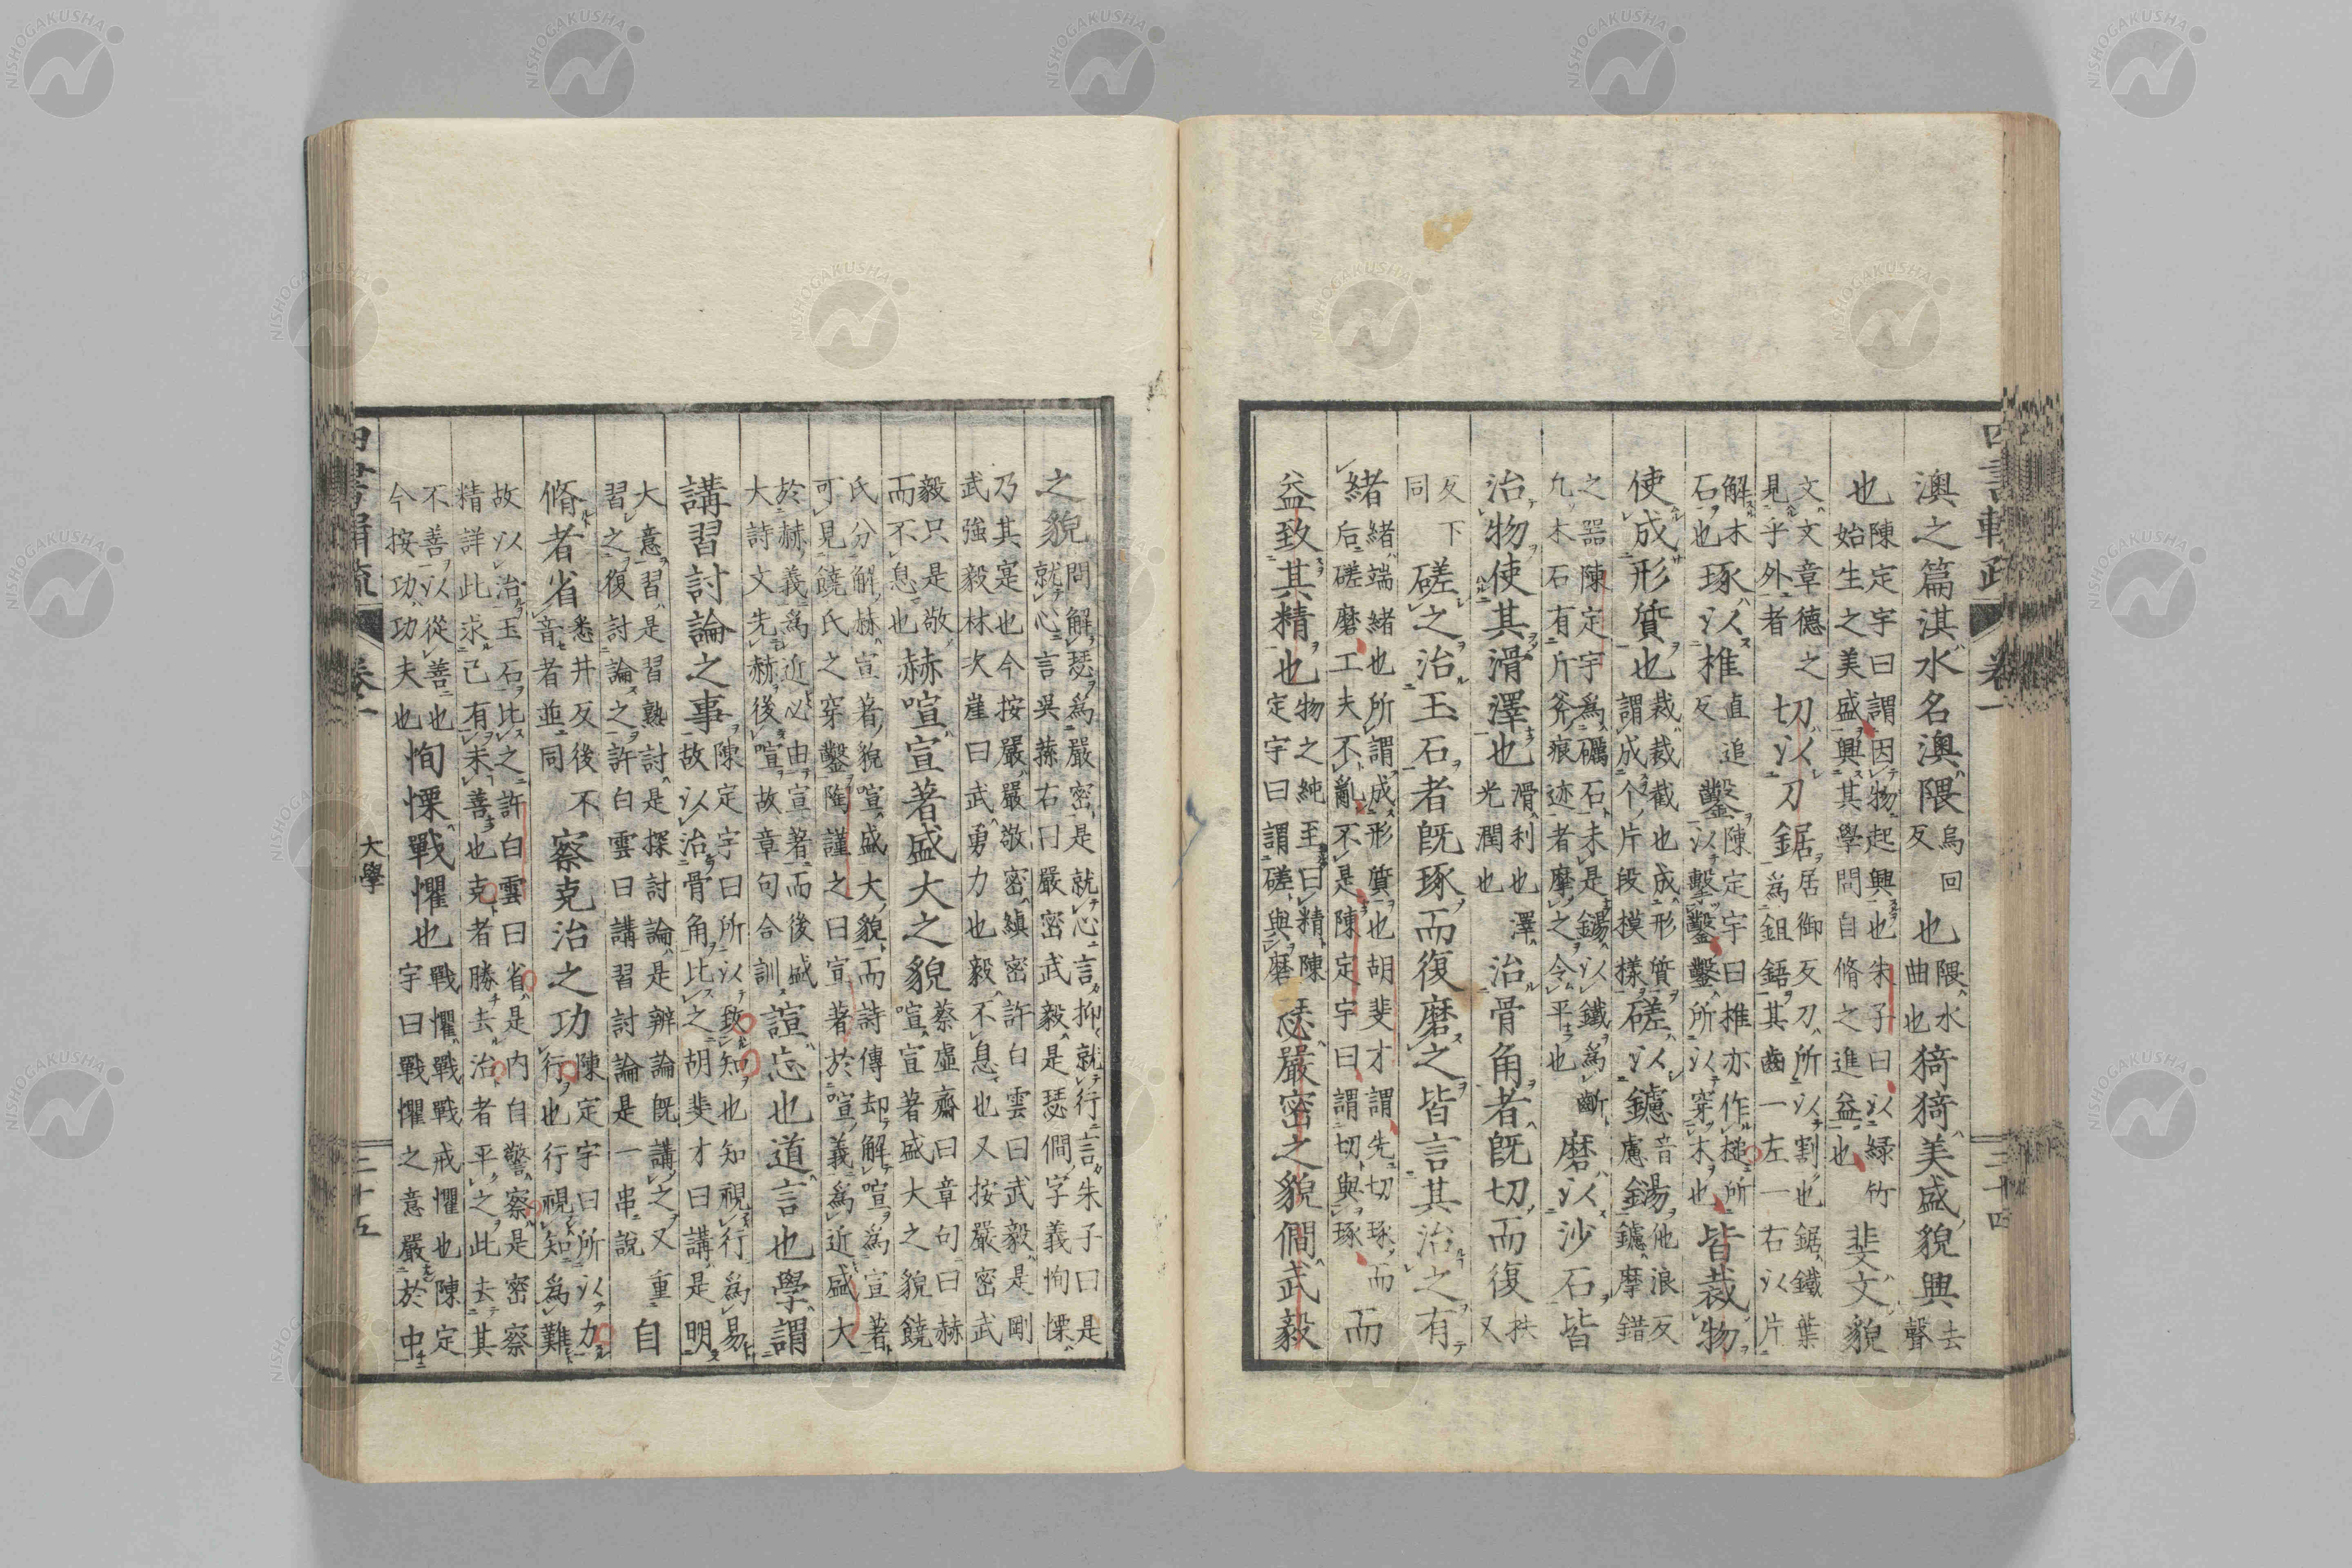 四書輯疏 卷一 三十四
澳之篇淇水名澳隈烏回反也隈水曲也猗猗美盛貌興去聲
也陳定宇曰謂因物起興也朱子曰以綠竹始生之美盛興其學問自脩之進益也斐文貌
文文章德之見乎外者切以刀鋸居御反刀所以割也鋸鐵葉為鉏鋙其齒一左一右以片
解木石也琢以椎直追反鑿陳定宇曰椎亦作槌所以鑿鑿鑿所以穿木也皆裁物
使成形質也裁裁截也成形質謂成个片段模樣磋以鑢音慮鐋他浪反鑢摩錯
之器陳定宇為礪石未是鐋以鐵為斷九木石有斤斧痕迹者摩之令平也磨以沙石皆
治物使其滑澤也滑利也澤光潤也治骨角者既切而復扶又
反下同磋之治玉石者既琢而復磨之皆言其治之有
緒緒端緒也所謂成形質也胡斐才謂先切琢而后磋磨工夫不亂不是陳定宇曰謂切與琢而
益致其精也物之純至曰精陳定宇曰謂磋與磨瑟嚴密之貌僩武毅
之貌問解瑟為嚴密是就心言抑就行言朱子曰是就心言吳蓀右曰嚴密武毅是瑟僩字義恂慄
乃其寔也今按嚴嚴敬密縝密許白雲曰武毅是剛武強毅林次崖曰武勇力也毅不息也又按嚴密武
毅只是敬而不息也赫喧宣著盛大之貌蔡虛齋曰章句曰赫喧宣著盛大之貌饒
氏分解赫宣著貌喧盛大貌而詩傳却解喧為宣著可見饒氏之穿鑿陸謹之曰宣著於喧義為近盛大
於赫義為近必由宣著而後盛大詩文先赫後喧故章句合訓諠忘也道言也學謂
講習討論之事陳定宇曰所以致知也知視行為易故以治骨角比之胡斐才曰講是明
大意習是習熟討是探討論是辨論既講之又重習之復討論之許白雲曰講習討論是一串說自
脩者省悉井反後不音者並同察克治之功陳定宇曰所以力行也行視知為難
故以治玉石比之許白雲曰省是內自警察是密察精詳此求己有未善也克者勝去治者平之此去其
不善以從善也今按功功夫也恂慄戰懼也戰懼戰戰戒懼也陳定宇曰戰懼之意嚴於中
四書輯疏 卷一 大學 三十五